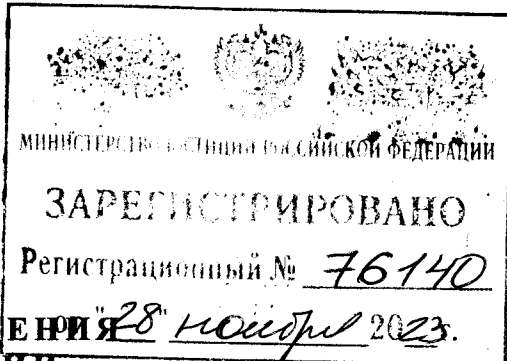 МИНИСТЕРСТВО ЮСТИЦИИ РОССИЙСКОЙ ФЕДЕРАЦИИ
ЗАРЕГИСТРИРОВАНО
Регистрационный № 76140
от "28" ноября 2023г.
ЕНИЯ